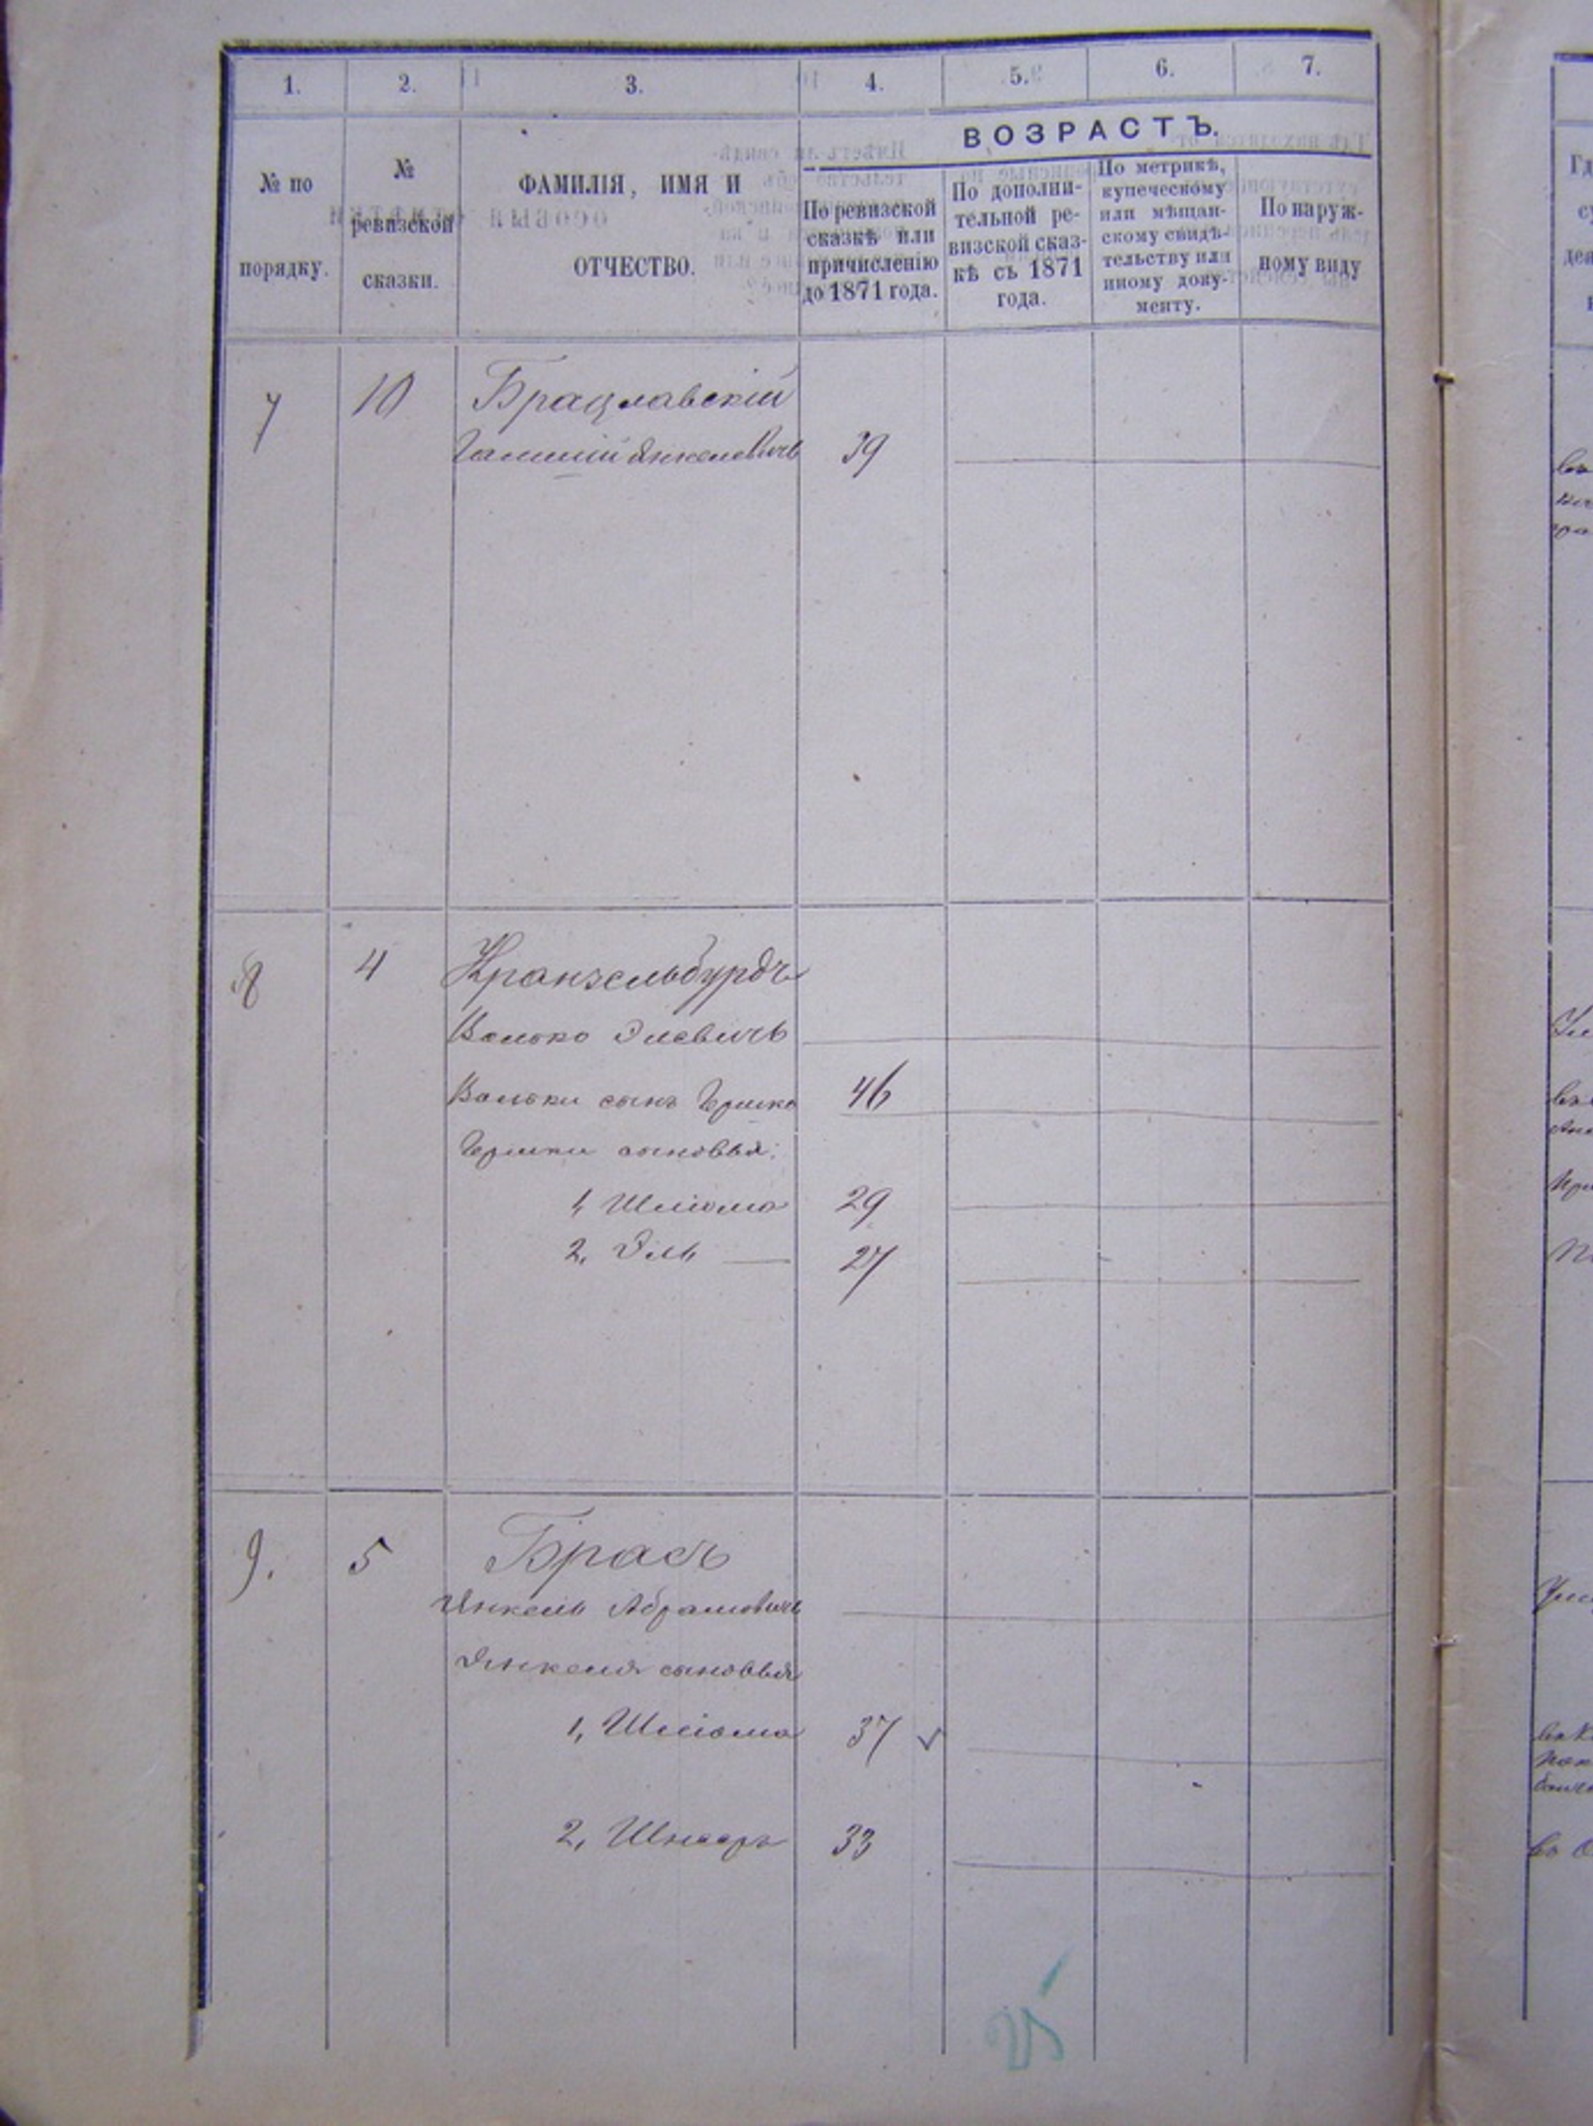 1. 2. 3. 4. 5. 6. 7.
ВОЗРАСТЪ.
№ по
порядку.
№
ревизской
сказки.
ФАМИЛІЯ, ИМЯ И
ОТЧЕСТВО.
По ревизской
сказкѣ или
причисленію
до 1871 года.
По дополни-
тельной ре-
визской сказ-
кѣ съ 1871
года.
По метрикѣ,
купеческому
или мѣщан-
скому свидѣ-
тельству или
иному доку-
менту.
По наруж-
ному виду
7 10 Брацлавскій
Янкелевичъ 39
8 4 Кранзельбурдъ
Волько Элевичъ
Вольки сынъ Гершко 46
Гершки сыновья:
1, Шліома 29
2, Эль 27
9. 5 Брасъ
Янкель Абрамовичъ
Янкеля сыновья
1, Шліома 37
2, Шнееръ 33